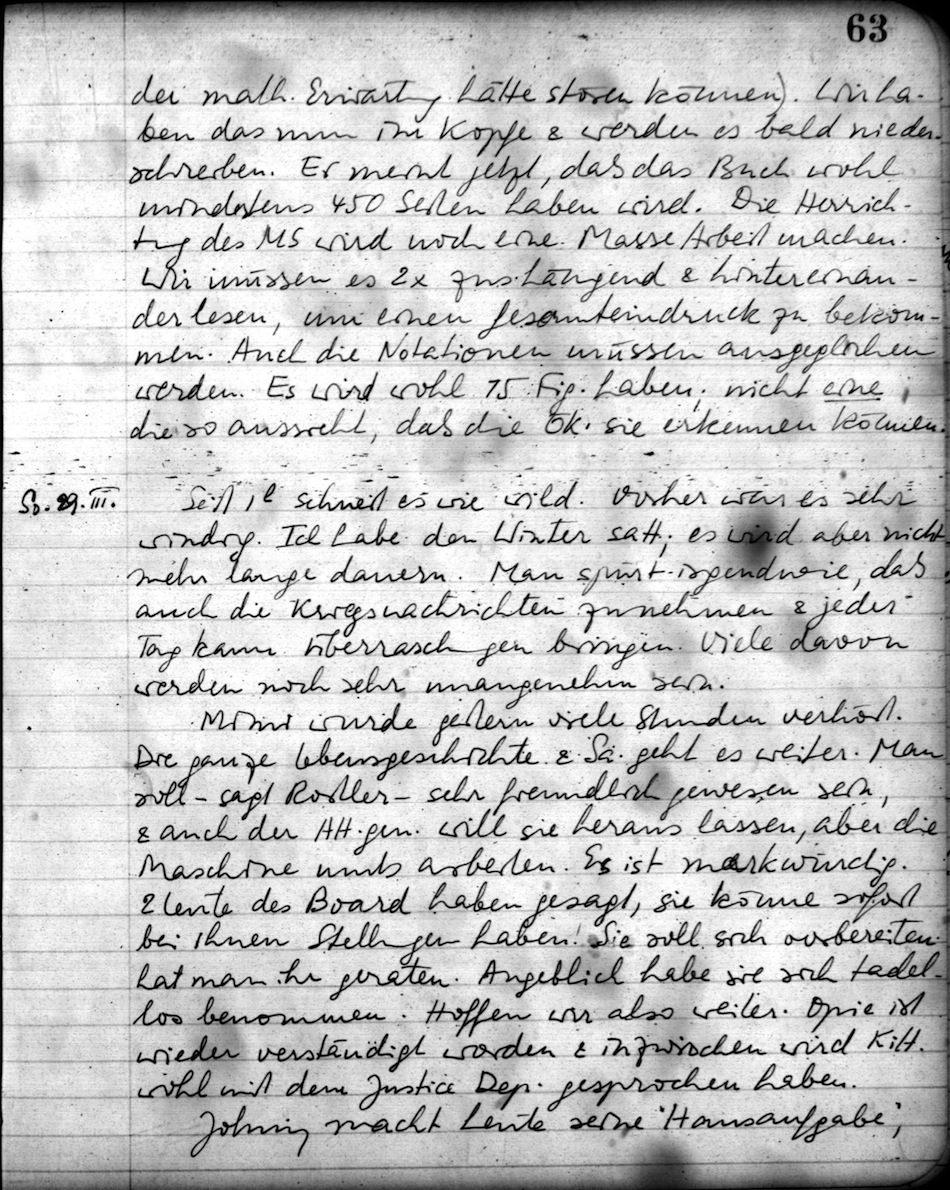 63
der math. Erwartung hätte stören können). Wir ha-
ben das nun im Kopfe & werden es bald nieder-
schreiben. Er meint jetzt, daß das Buch wohl
mindestens 450 Seiten haben wird. Die Herrich-
tung des MS wird noch eine Masse Arbeit machen.
Wir müssen es 2x zus.hängend & hintereinan-
der lesen, um einen Gesamteindruck zu bekom-
men. Auch die Notationen müssen ausgeglichen
werden. Es wird wohl 75 Fig. haben; nicht eine,
die so aussieht, daß die Ök. sie erkennen können.
So. 29. III. Seit 1h schneit es wie wild. Vorher war es sehr
windig. Ich habe den Winter satt; es wird aber nicht
mehr lange dauern. Man spürt irgendwie, daß
auch die Kriegsnachrichten zunehmen & jeder
Tag kann Überraschungen bringen. Viele davon
werden noch sehr unangenehm sein.
Mimi wurde gestern viele Stunden verhört.
Die ganze Lebensgeschichte & Sa. geht es weiter. Man
soll – sagt – sehr freundlich gewesen sein,
& auch der AH.gen. will sie heraus lassen, aber die
Maschine muß arbeiten. Es ist merkwürdig.
2 Leute des Board haben gesagt, sie könne sofort
bei Ihnen Stellungen haben! Sie soll sich vorbereiten
hat man ihr geraten. Angeblich habe sie sich tadel-
los benommen. Hoffen wir also weiter. Opie ist
wieder verständigt worden & inzwischen wird Kitt.
wohl mit dem Justice Dep. gesprochen haben.
Johnny macht heute seine 'Hausaufgabe',